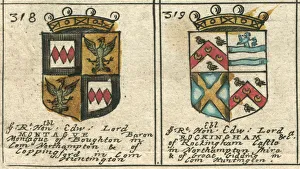 318
Ye Rt. Hon: Edw: Lord
MONTAGVE Baron
Montague of Boughton in
Com Northampton & of
Coppingford in Com
Huntington
319
Ye Rt. Hon: Edw: Lord
ROCKINGHAM &c.
of Rockingham Castle
in Northampton shire
& of Great Gidding in
Com Huntington.